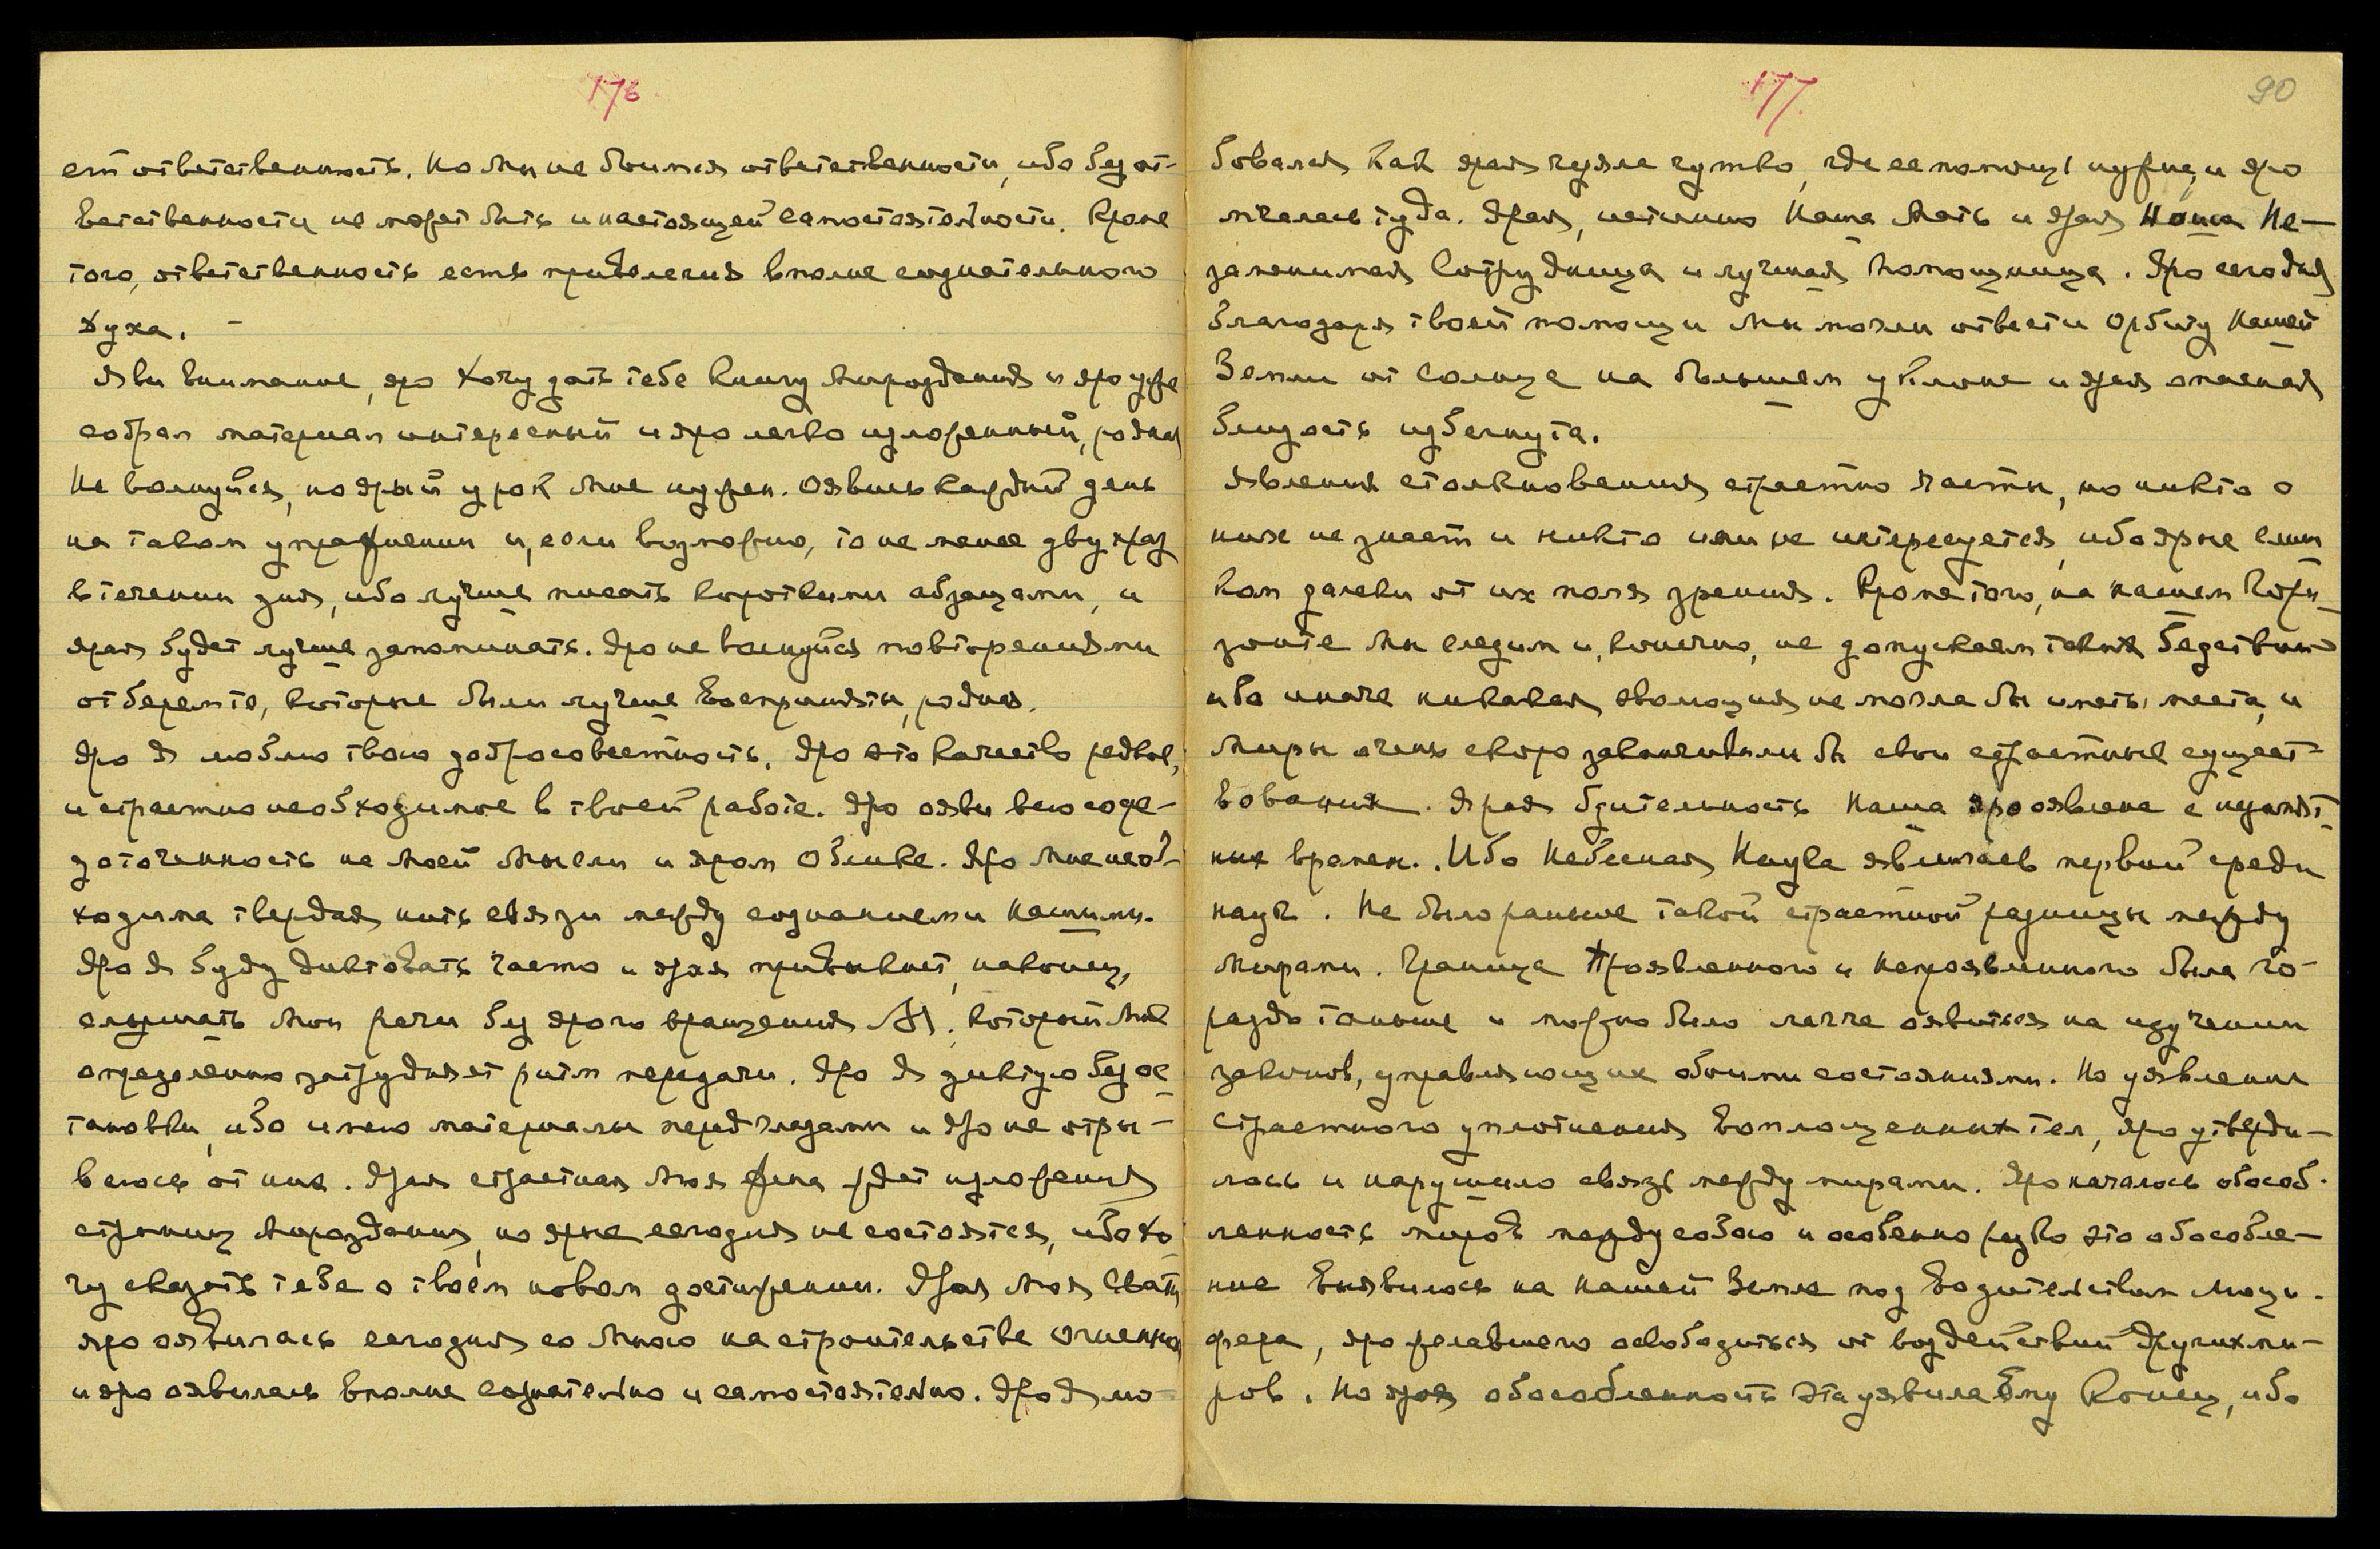 176
ет ответственность. Но Мы не боимся ответственности, ибо без от-
ветственности не может быть и настоящей самостоятельности. Кроме
того, ответственность есть привилегия вполне сознательного
духа. –
Яви внимание, яро хочу дать тебе книгу Мироздания и яро уже
собрал материал интересный и яро легко изложенный, родная
Не волнуйся, но ярый урок Мне нужен. Оявись каждый день
на таком упражнении и, если возможно, то не менее двух раз
в течении дня, ибо лучше писать короткими абзацами, и
ярая будет лучше запоминать. Яро не волнуйся повторениями
отберем те, которые были лучше восприняты, родная.
Яро Я люблю твою добросовестность. Яро это качество редкое,
и страстно необходимое в твоей работе. Яро ояви всю сосре-
доточенность на Моей Мысли и яром Облике. Яро Мне необ-
ходима твердая нить связи между сознаниями нашими.
Яро Я буду диктовать часто и ярая привыкнет, наконец,
слышать Мои речи без ярого вращения, который Мне
определенно затрудняет ритм передачи. Яро Я диктую без ос-
тановки, ибо имею материалы перед глазами и яро не отры-
ваюсь от них. Ярая страстная Моя жена ждет изложения
страниц Мироздания, но ярые сегодня не состоятся, ибо хо-
чу сказать тебе о твоем новом достижении. Ярая Моя Свати
яро оявилась сегодня со Мною на строительстве огненном
и яро оявилась вполне сознательно и самостоятельно. Яро Я лю-
177
90
бовался как ярая чуяла чутко, где ее помощь нужна, и яро
мчалась туда. Ярая, истинно Наша Мать и ярая Наша Не-
заменимая Сотрудница и лучшая помощница. Яро сегодня
благодаря твоей помощи Мы могли отвести орбиту нашей
Земли от Солнца на большем уклоне и ярая опасная
близость избегнута.
Явления столкновения страстно часты, но никто о
них не знает и никто ими не интересуется, ибо ярые слиш
ком далеки от их поля зрения. Кроме того, на нашем Гори-
зонте Мы следим и, конечно, не допускаем таких бедствий
ибо иначе никакая эволюция не могла бы иметь места, и
Миры очень скоро заканчивали бы свои страстные сущест-
вования. Ярая бдительность Наша яро оявлена с издавт-
них времен. Ибо Небесная Наука явилась первой среди
наук. Не было раньше такой страстной разницы между
Мирами. Граница Проявленного и Непроявленного была го-
раздо тоньше и можно было легче оявиться на изучении
законов, управляющих обоими состояниями. Но уявление
страстного уплотнения воплощенных тел, яро утверди-
лось и нарушило связь между мирами. Яро началось обособ-
ленность миров между собою и особенно резко это обособле-
ние выявилось на нашей Земле под водительством Люци-
фера, яро желавшего освободиться от воздействий других ми-
ров. Но ярая обособленность эта уявила ему Конец, ибо